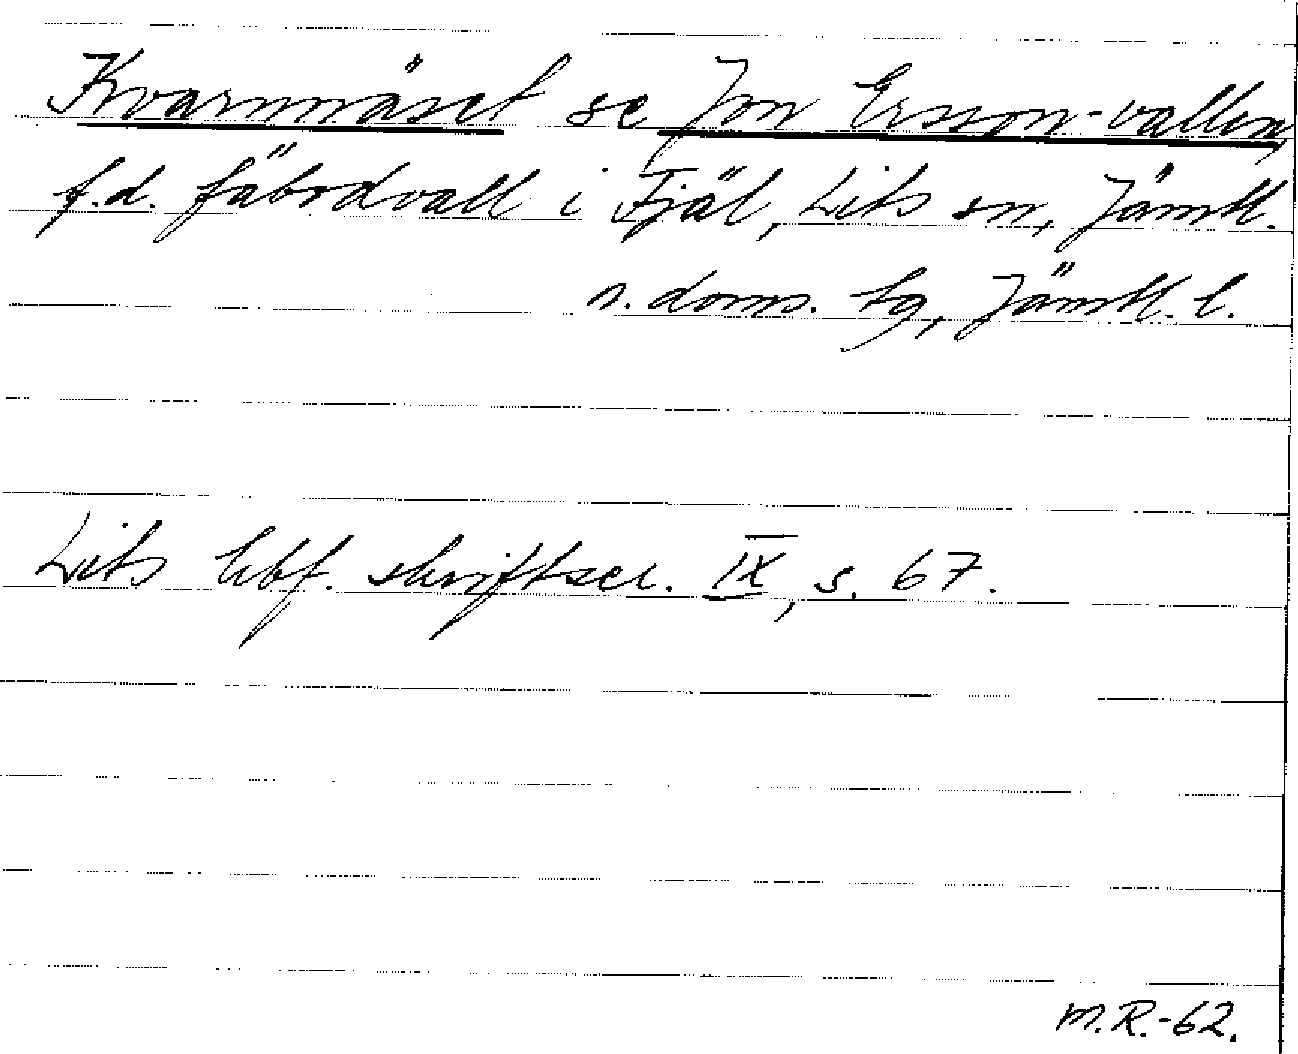 Kvarnnäset se Jon Ersson-vallen,
f.d. fäbodvall i Fjäl, Lits sn, Jämtl.
n. doms. tg, Jämtl. l.
Lits hbf. skriftser. IX, s. 67.
M.R.-62.